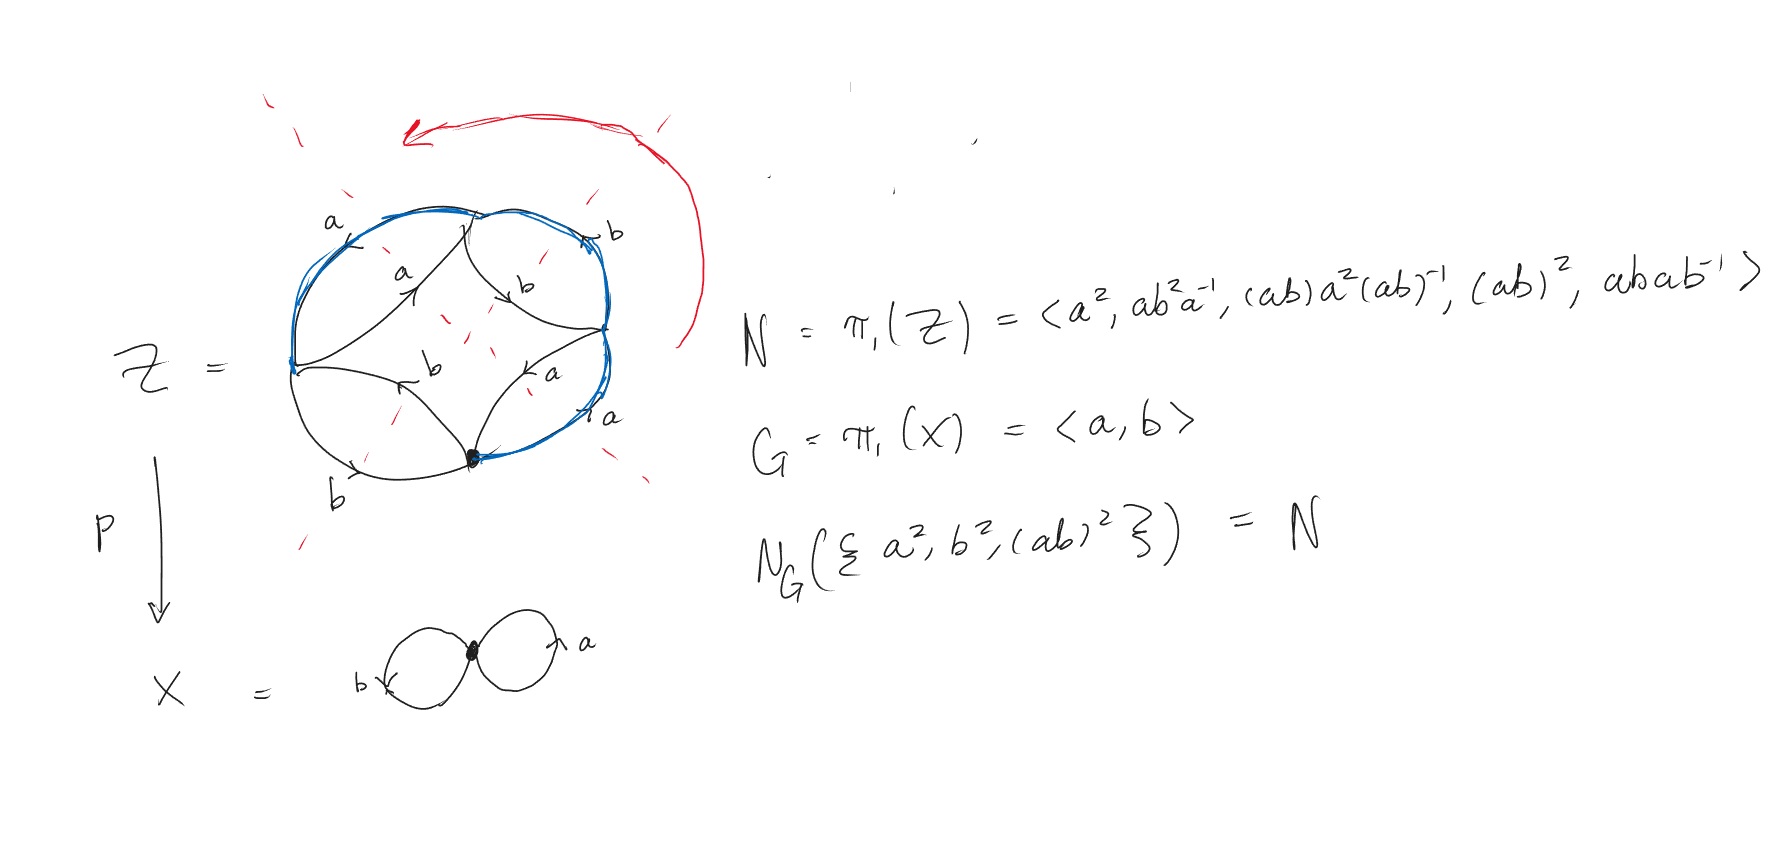 a
b
a
b
Z =
b
a
a
b
p
X =
b
a
N = π₁(Z) = <a², ab²a⁻¹, (ab)a²(ab)⁻¹, (ab)², abab⁻¹>
G = π₁(X) = <a, b>
N_G({a², b², (ab)²}) = N